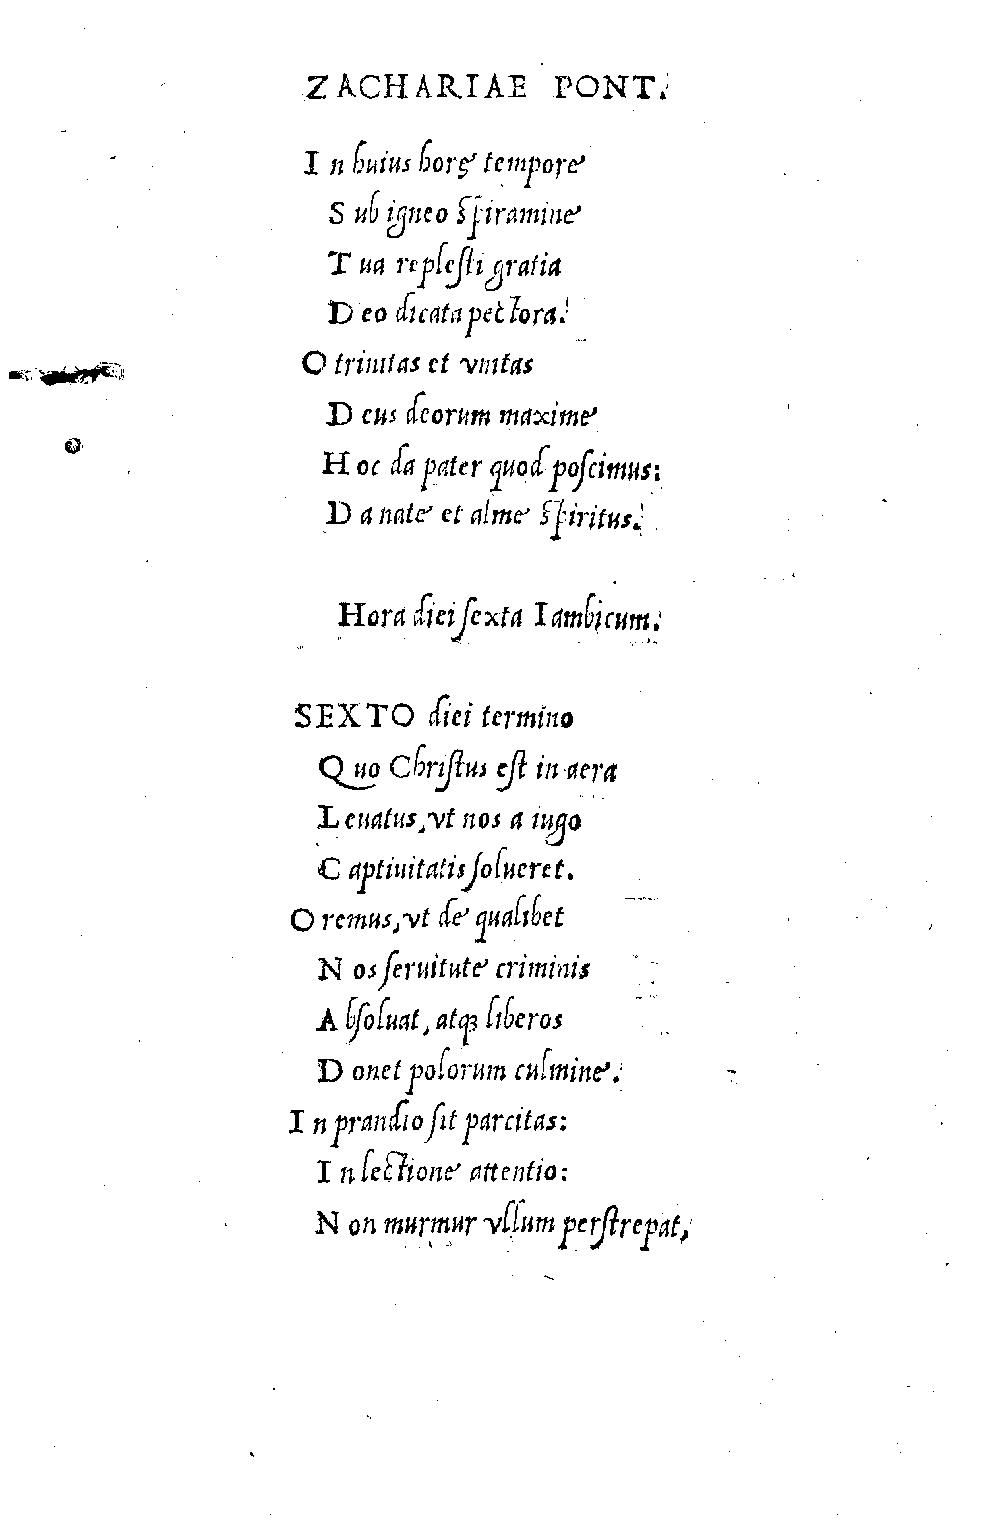 ZACHARIAE PONT.
In huius horę tempore
Sub igneo ſpiramine
Tua repleſti gratia
Deo dicata pectora.
O trinitas et vnitas
Deus deorum maxime
Hoc da pater quod poſcimus:
Da nate et alme ſpiritus.
Hora diei ſexta Iambicum.
SEXTO diei termino
Quo Chriſtus eſt in aera
Leuatus, vt nos a iugo
Captiuitatis ſolueret.
Oremus, vt de qualibet
Nos ſeruitute criminis
Abſoluat, atqꝫ liberos
Donet polorum culmine.
In prandio ſit parcitas:
In lectione attentio:
Non murmur vllum perſtrepat,